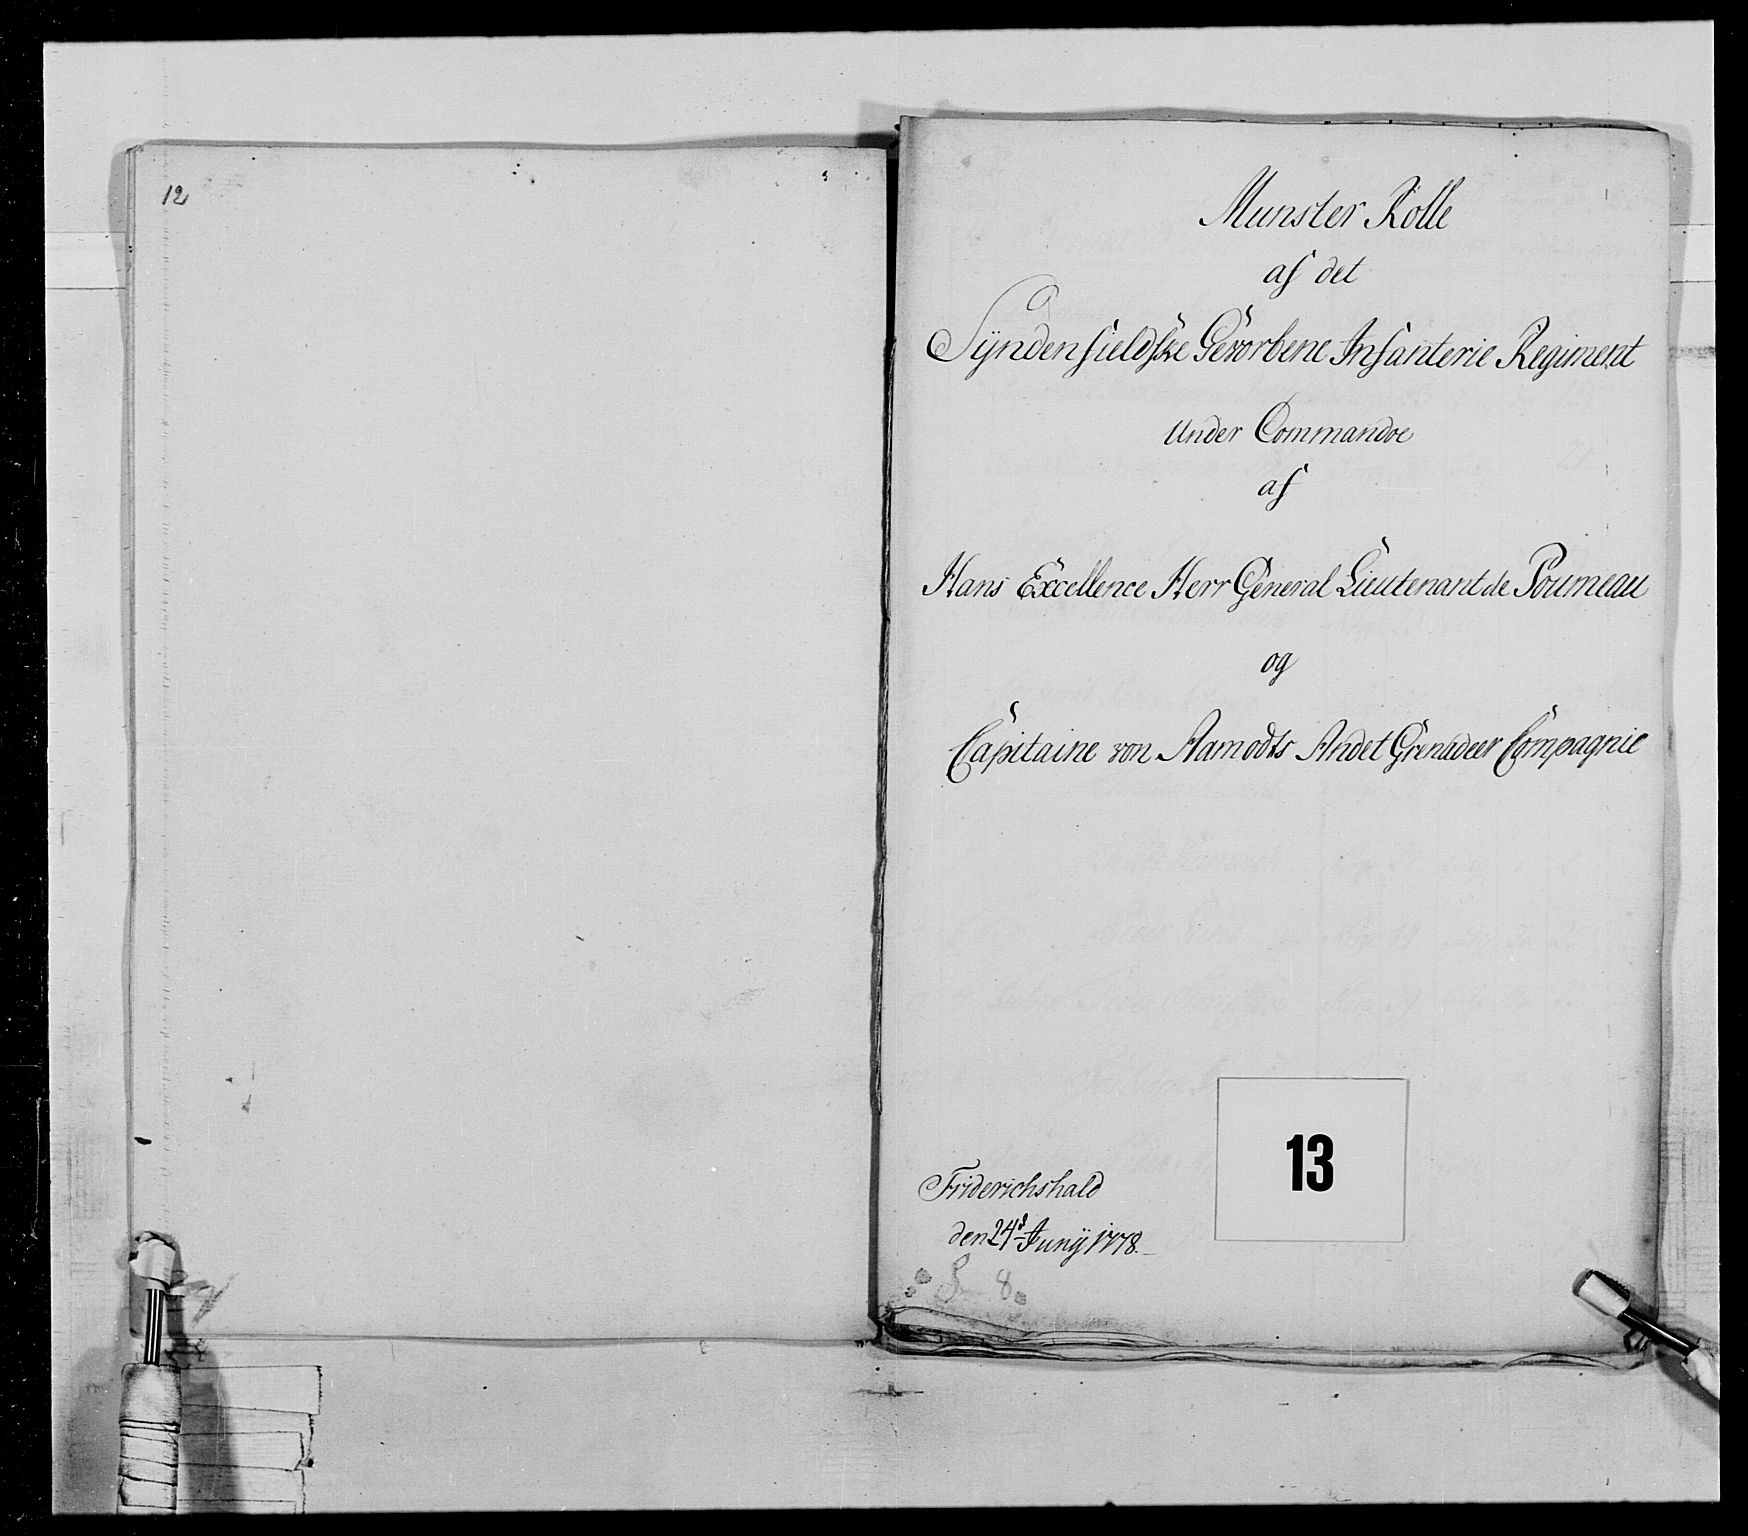 12
Munster Rolle
af det
Syndenfieldske Gevorbene Infanterie Regiment
Under Commandoe
af
Hans Excellence Herr General Lieutenant de Poumeau
og
Capitaine von Aamodts Andet Grenadeer Compagnie
13
Friderichshald
den 24d Junij 1778.
8